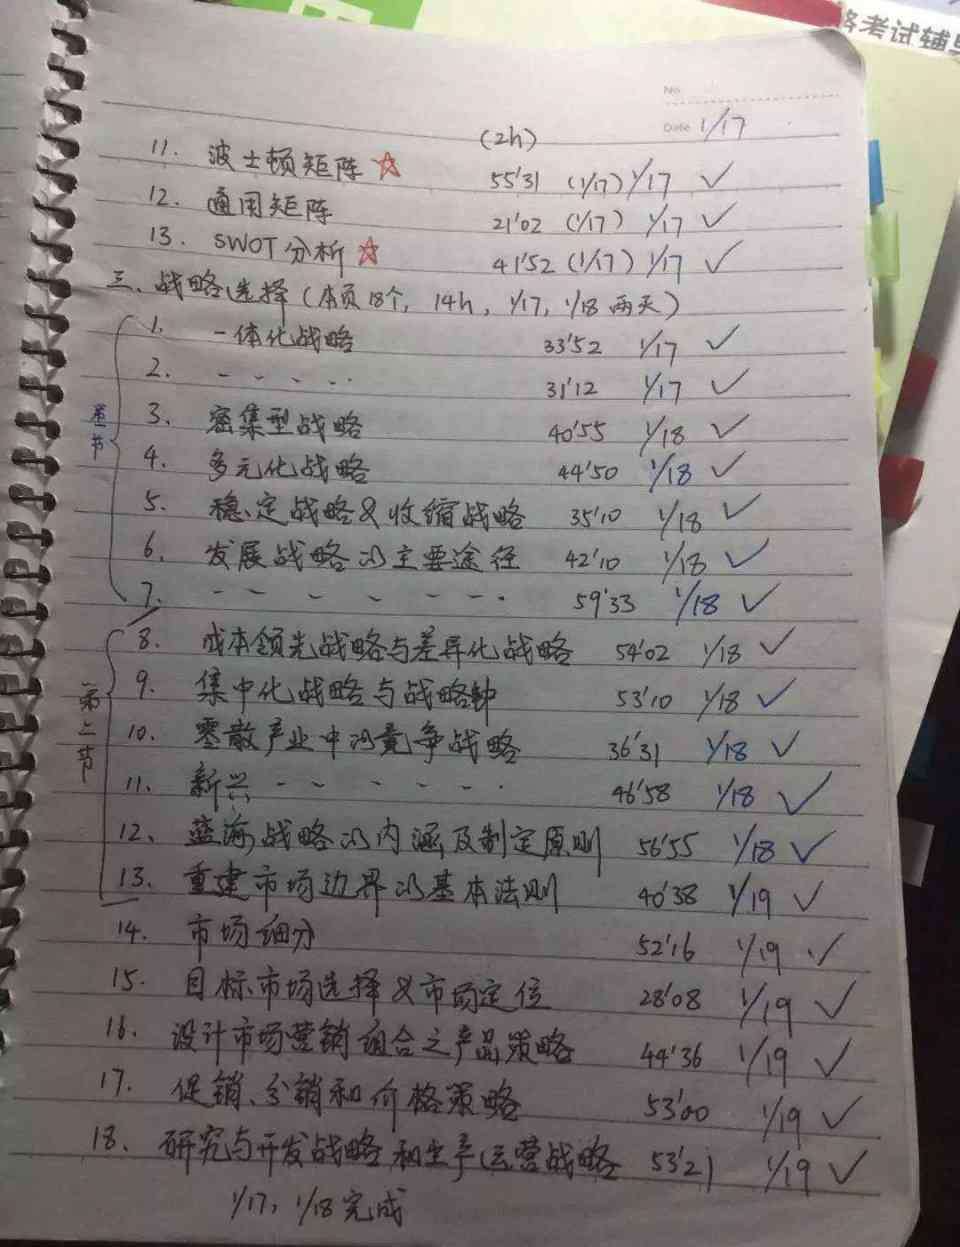 格考试辅导
No.
Date 1/17
(2h)
11. 波士顿矩阵 ☆ 55'31 (1/17) 1/17 ✓
12. 通用矩阵 21'02 (1/17) 1/17 ✓
13. SWOT分析 ☆ 41'52 (1/17) 1/17 ✓
三、战略选择(本页18个, 14h, 1/17, 1/18 两天)
1. 一体化战略 33'52 1/17 ✓
2. - - - - - 31'12 1/17 ✓
3. 密集型战略 40'55 1/18 ✓
4. 多元化战略 44'50 1/18 ✓
第一节
5. 稳定战略&收缩战略 35'10 1/18 ✓
6. 发展战略的主要途径 42'10 1/18 ✓
7. - - - - - - - 59'33 1/18 ✓
8. 成本领先战略与差异化战略 54'02 1/18 ✓
9. 集中化战略与战略钟 53'10 1/18 ✓
第二节
10. 零散产业中的竞争战略 36'31 1/18 ✓
11. 新兴 - - - - - - 46'58 1/18 ✓
12. 蓝海战略的内涵及制定原则 56'55 1/18 ✓
13. 重建市场边界的基本法则 40'38 1/19 ✓
14. 市场细分 52'16 1/19 ✓
15. 目标市场选择&市场定位 28'08 1/19 ✓
16. 设计市场营销组合之产品策略 44'36 1/19 ✓
17. 促销、分销和价格策略 53'00 1/19 ✓
18. 研究与开发战略和生产运营战略 53'21 1/19 ✓
1/17, 1/18 完成